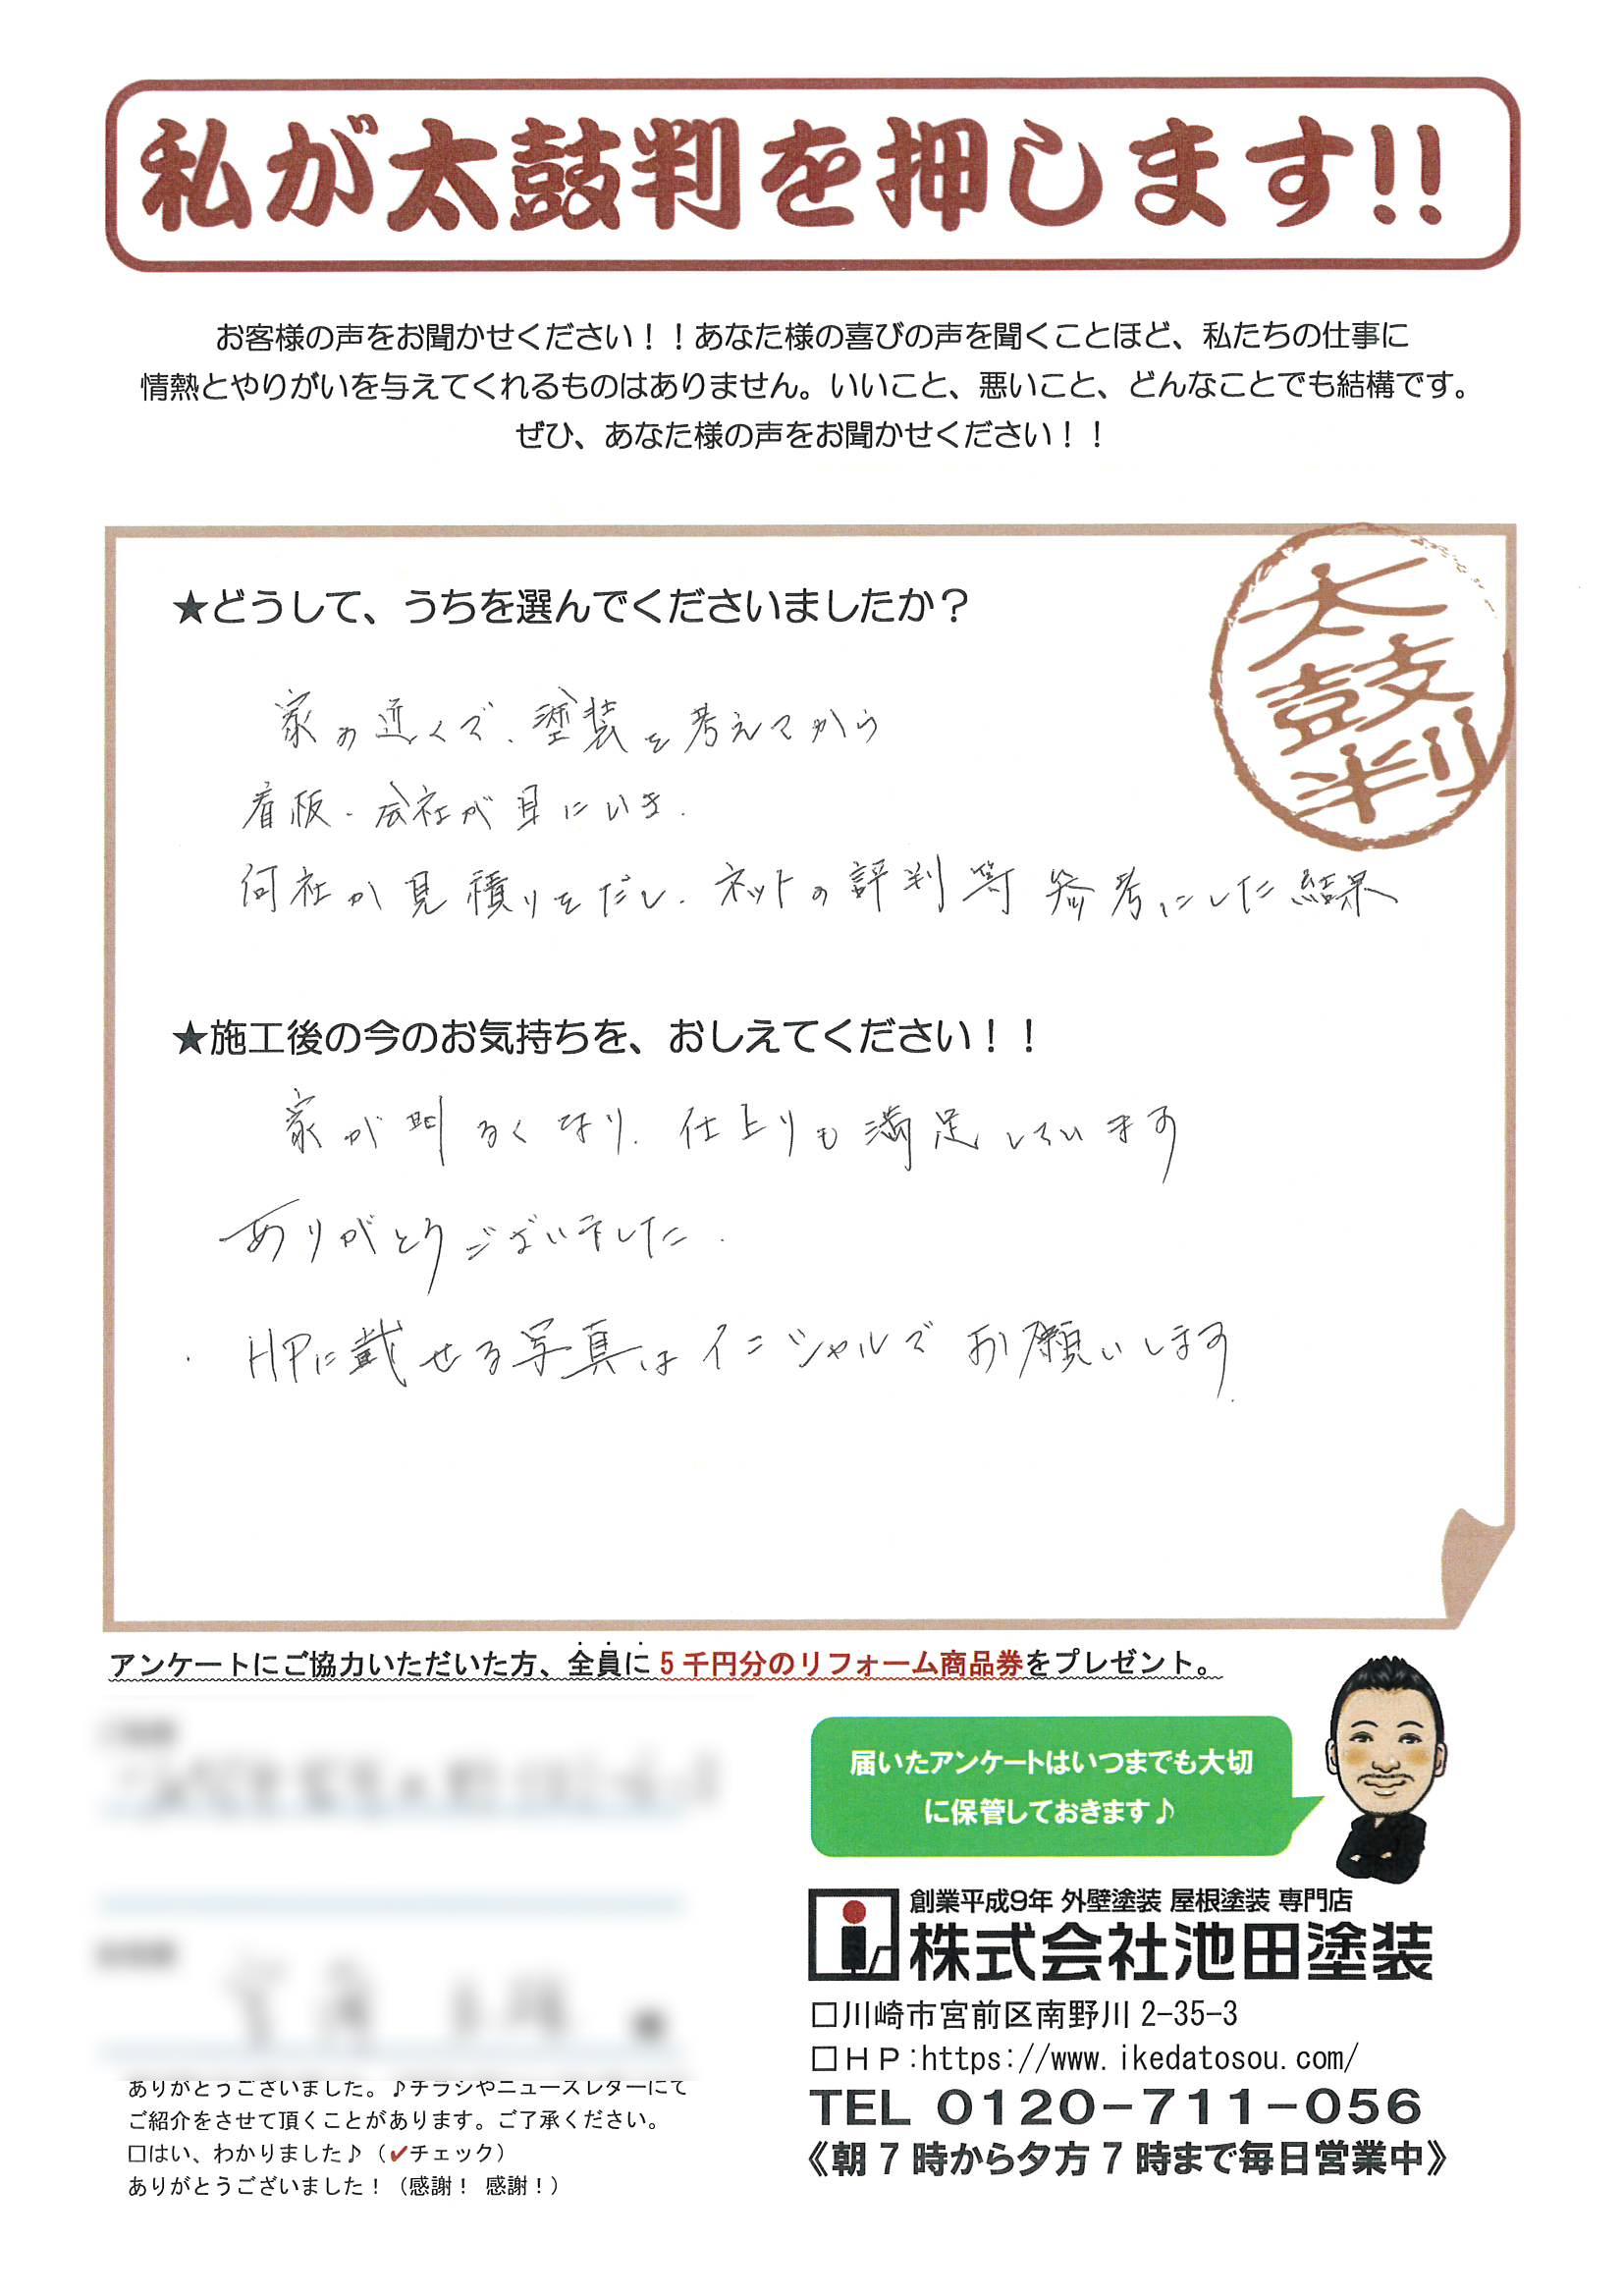 私が太鼓判を押します!!
お客様の声をお聞かせください！！あなた様の喜びの声を聞くことほど、私たちの仕事に
情熱とやりがいを与えてくれるものはありません。いいこと、悪いこと、どんなことでも結構です。
ぜひ、あなた様の声をお聞かせください！！
太鼓判
★どうして、うちを選んでくださいましたか？
家の近くで、塗装を考えてから
看板、会社が目にいき、
何社か見積りをだし、ネットの評判等参考にした結果
★施工後の今のお気持ちを、おしえてください！！
家が明るくなり、仕上りも満足しています
ありがとうございました。
・HPに載せる写真はイニシャルでお願いします。
アンケートにご協力いただいた方、全員に5千円分のリフォーム商品券をプレゼント。
届いたアンケートはいつまでも大切
に保管しておきます♪
創業平成9年 外壁塗装 屋根塗装 専門店
株式会社池田塗装
□川崎市宮前区南野川 2-35-3
□ＨＰ:https://www.ikedatosou.com/
TEL 0120-711-056
《朝7時から夕方7時まで毎日営業中》
ありがとうございました。♪チラシやニュースレターにて
ご紹介をさせて頂くことがあります。ご了承ください。
□はい、わかりました♪（✔チェック）
ありがとうございました！（感謝！ 感謝！）